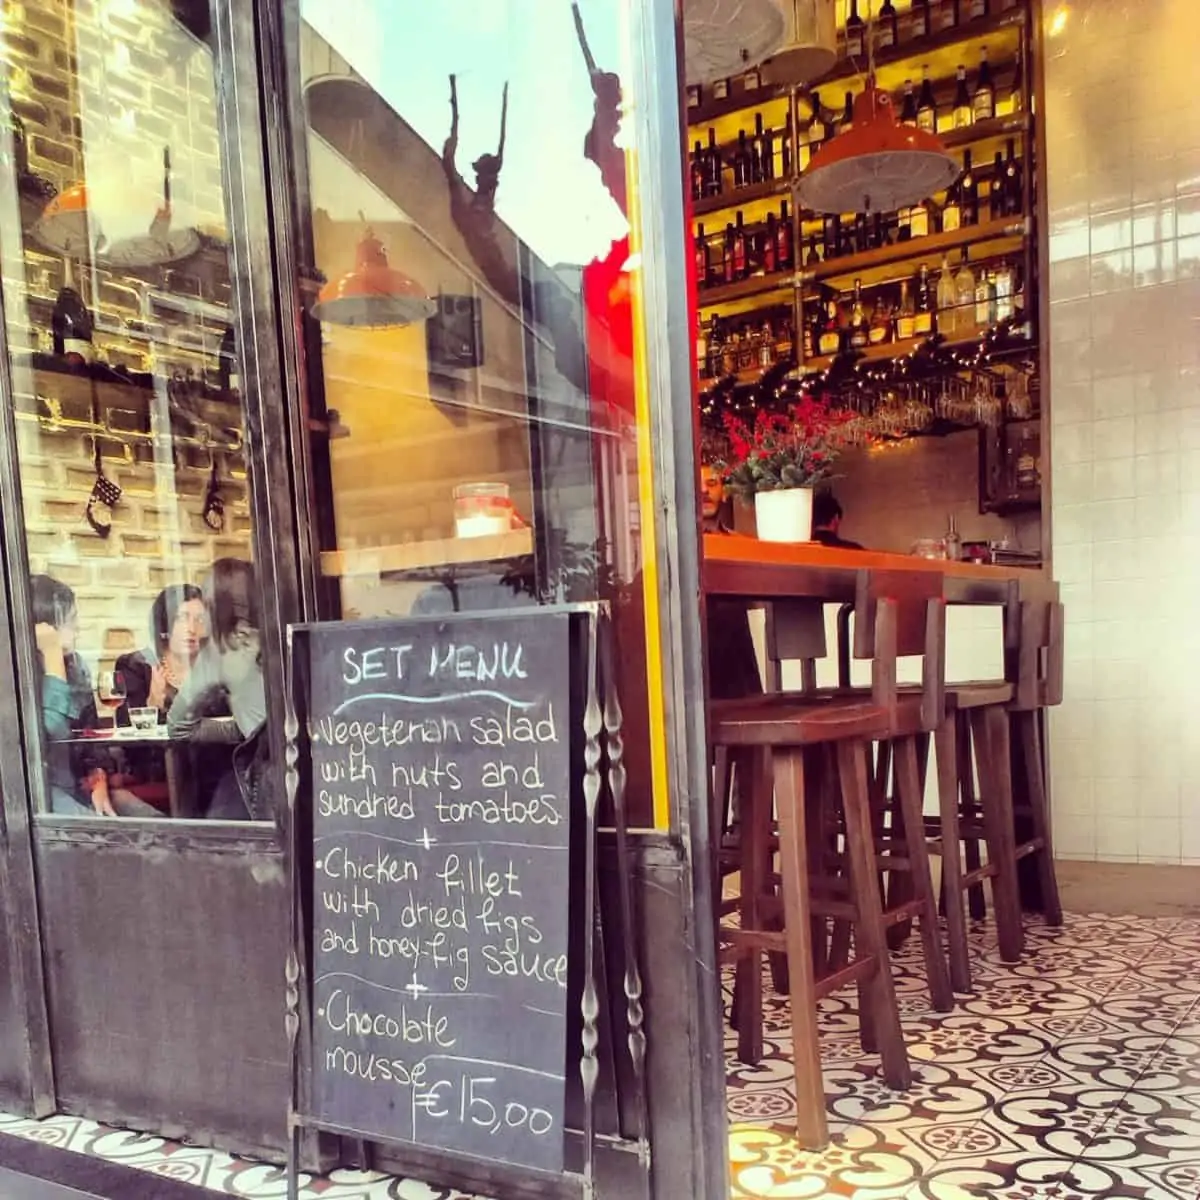 SET MENU
•Vegeterian salad
with nuts and
sundried tomatoes
+
•Chicken fillet
with dried figs
and honey-fig sauce
+
•Chocolate
mousse
€15,00